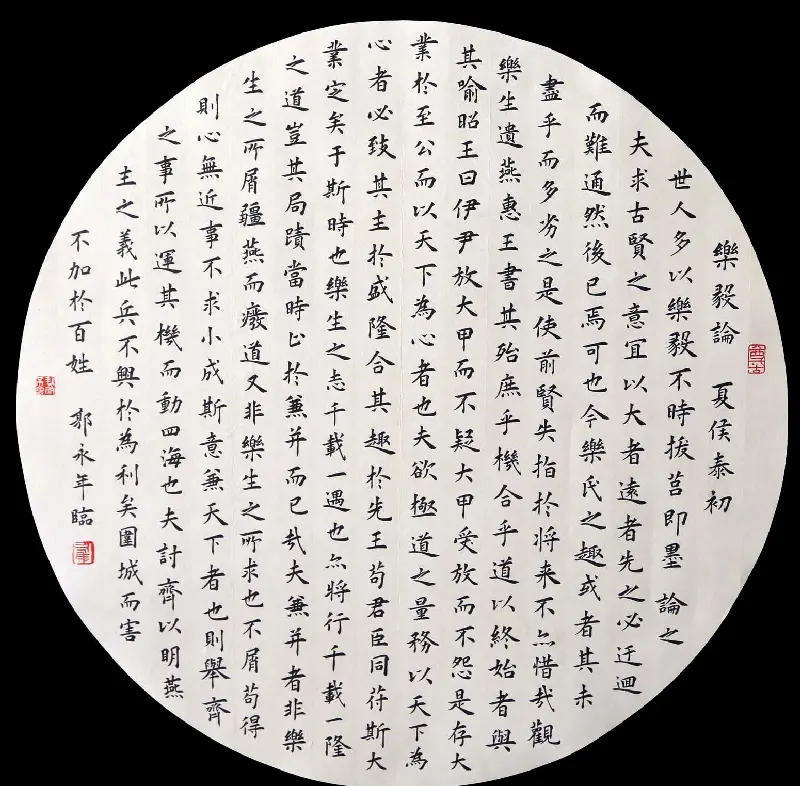 樂毅論 夏侯泰初
世人多以樂毅不時拔莒即墨 論之
夫求古賢之意宜以大者遠者先之必迂迴
而難通然後已焉可也今樂氏之趣或者其未
盡乎而多劣之是使前賢失指於將来不亦惜哉觀
樂生遺燕惠王書其殆庶乎機合乎道以終始者與
其喻昭王曰伊尹放大甲而不疑大甲受放而不怨是存大
業於至公而以天下為心者也夫欲極道之量務以天下為
心者必致其主於盛隆合其趣於先王苟君臣同苻斯大
業定矣于斯時也樂生之志千載一遇也亦將行千載一隆
之道豈其局蹟當時止於兼并而已哉夫兼并者非樂
生之所屑疆燕而癈道又非樂生之所求也不屑苟得
則心無近事不求小成斯意兼天下者也則舉齊
之事所以運其機而動四海也夫討齊以明燕
主之義此兵不興於為利矣圍城而害
不加於百姓 郭永年臨